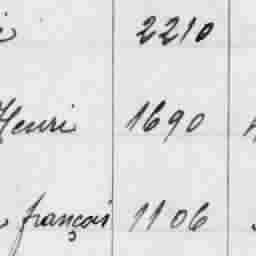 2210
Henri 1690
françois 1106